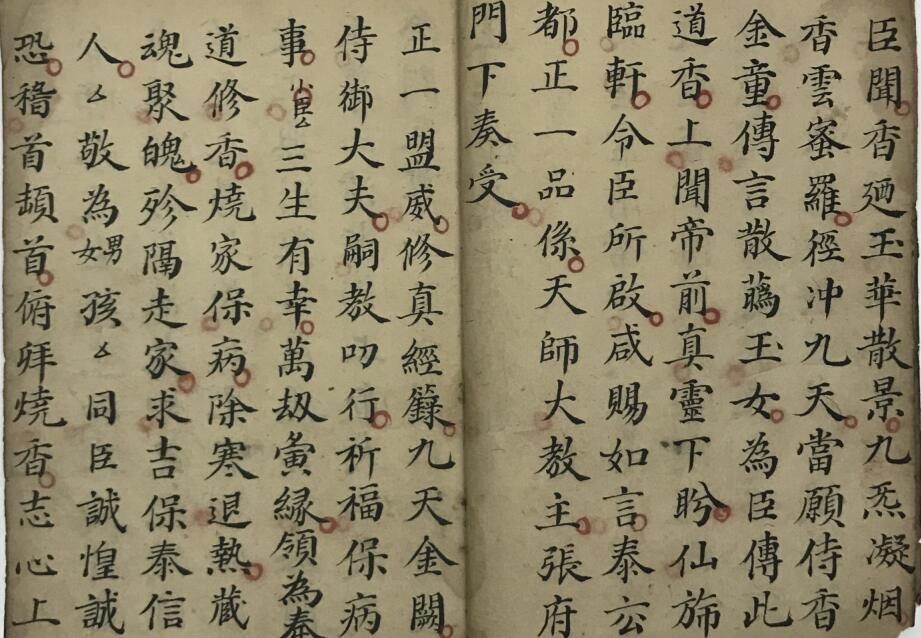 臣聞香廼玉華散景九炁凝烟
香雲蜜羅徑冲九天當願侍香
金童傳言散蘤玉女為臣傳此
道香上聞帝前真靈下盻仙斾
臨軒令臣所啟咸賜如言泰玄
都正一品係天師大教主張府
門下奏受
正一盟威修真經籙九天金闕
侍御大夫嗣教叩行祈福保病
事小臣厶三生有幸萬劫夤緣領為奉
道修香燒家保病除寒退熱藏
魂聚魄殄隔走家求吉保泰信
人厶敬為男女孩厶同臣誠惶誠
恐稽首頓首俯拜燒香志心上